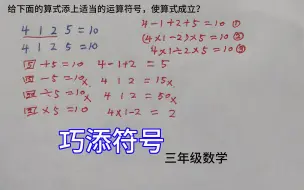 给下面的算式添上适当的运算符号，使算式成立？
4 1 2 5 = 10
4 - 1 + 2 + 5 = 10 ①
4 1 2 5 = 10
(4 × 1 - 2) × 5 = 10 ②
4 × 1 ÷ 2 × 5 = 10 ③
+ 5 = 10
4 - 1 + 2 = 5
- 5 = 10
4 1 2 = 15 ×
÷ 5 = 10
4 1 2 = 50 ×
× 5 = 10
4 × 1 - 2 = 2
巧添符号
三年级数学